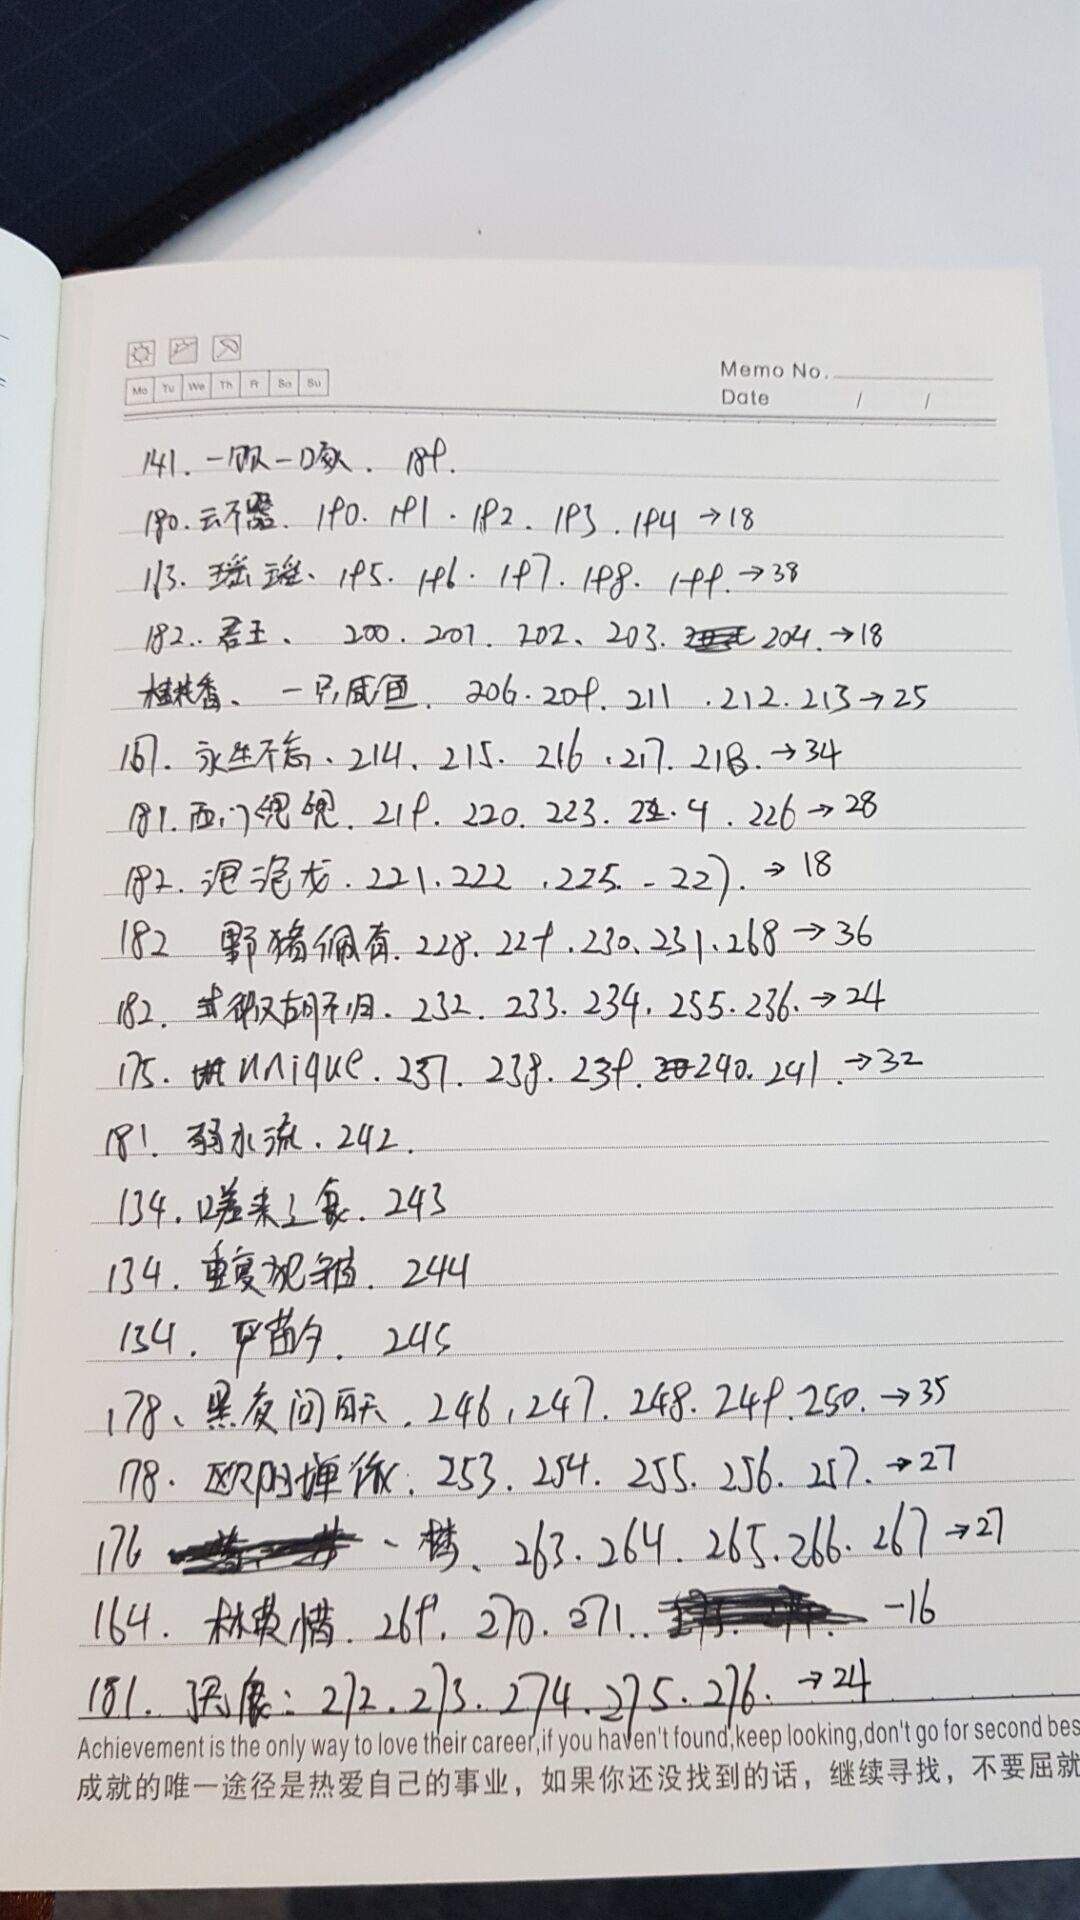 Mo Tu We Th Fr Sa Su
Memo No.
Date / /
141. 一饮一啄. 189.
180. 云不器. 190. 191. 192. 193. 194 →18
113. 瑶瑶、195. 196. 197. 198. 199. →38
182. 君王、 200. 201. 202、203. 204. →18
桂花香、一只咸鱼. 206. 209. 211 . 212. 213 → 25
167. 永生不忘、214. 215. 216 . 217. 218. →34
181. 西门兜兜. 219. 220. 223. 4. 226 → 28
182. 泡泡龙. 221. 222 . 225. - 227. → 18
182 野猪佩奇. 228. 229. 230. 231. 268 → 36
182. 式微胡不归. 232. 233. 234. 255. 236. → 24
175. unique. 237. 238. 239. 240. 241. →32
181. 弱水流. 242.
134. 嗟来之食. 243
134. 重复犯. 244
134. 苗夕. 245
178、黑夜问白天. 246. 247. 248. 249. 250. →35
178. 欧阳. 253. 254. 255. 256. 257. →27
176 一梦、263. 264. 265. 266. 267 →27
164. 林惜. 269. 270. 271.. -16
181. 食: 272. 273. 274. 275. 276. →24
Achievement is the only way to love their career,if you haven't found,keep looking,don't go for second bes
成就的唯一途径是热爱自己的事业，如果你还没找到的话，继续寻找，不要屈就